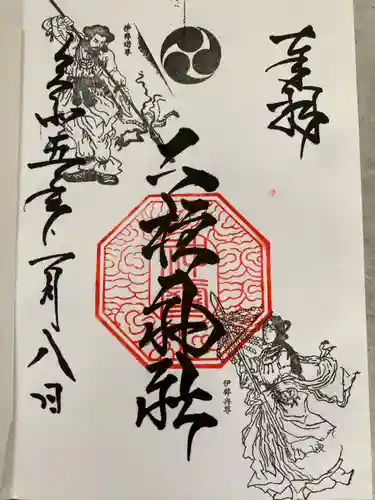 奉拝
神社
令和五年一月八日
伊弉諾尊
伊弉冉尊